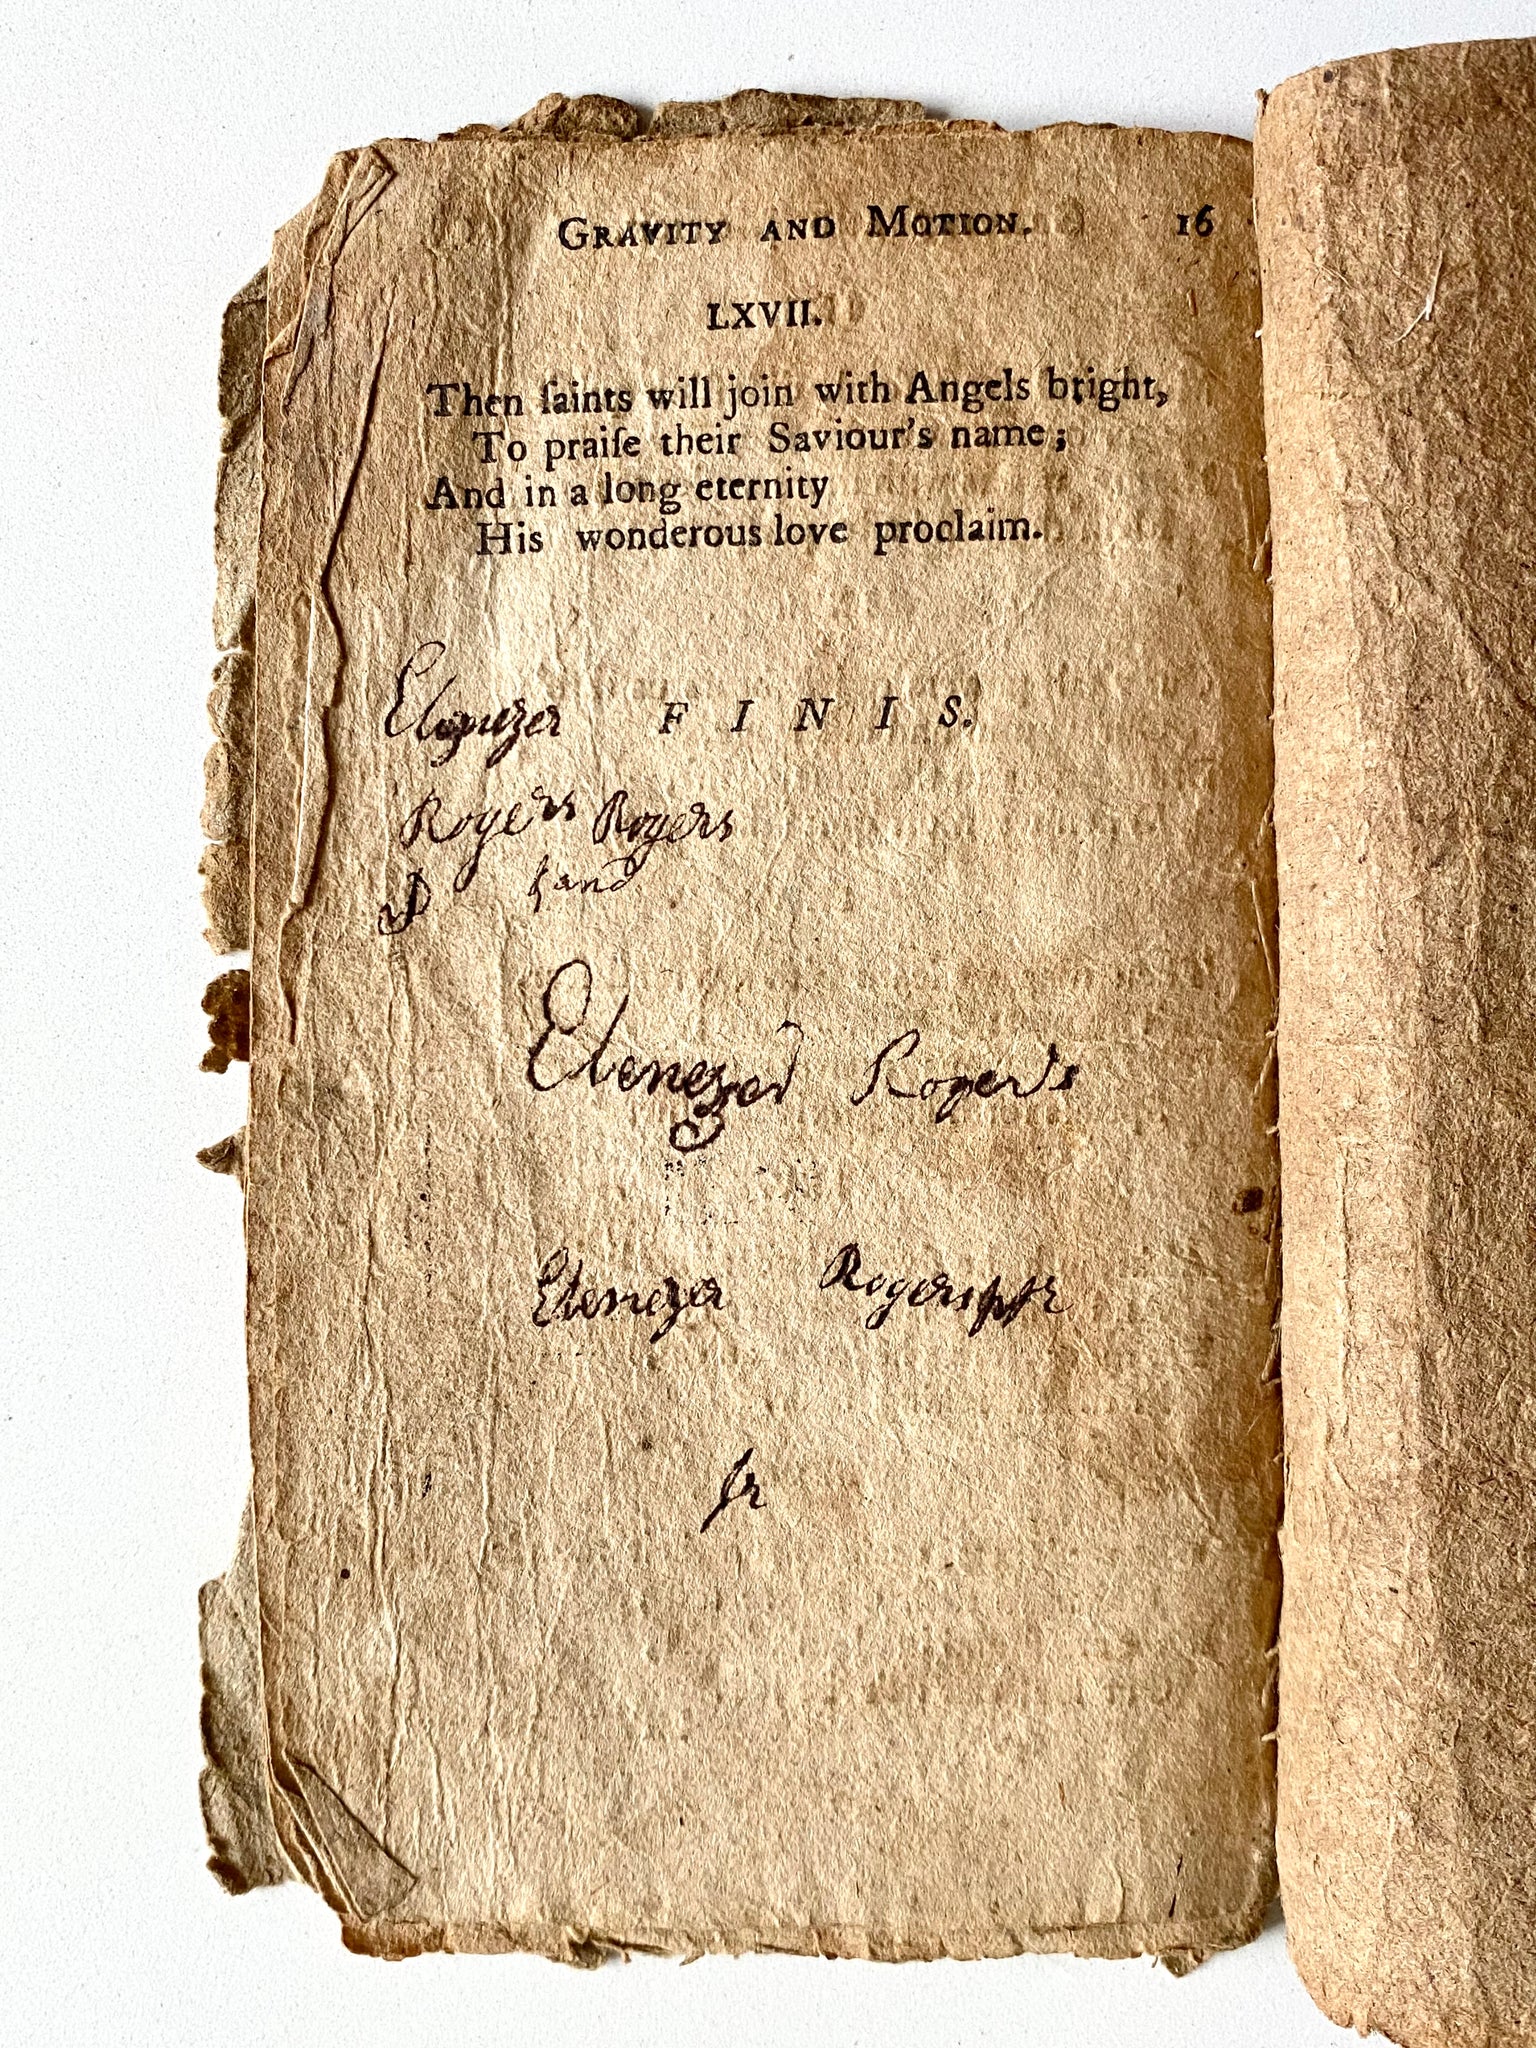 GRAVITY AND MOTION. 16
LXVII.
Then ſaints will join with Angels bright,
To praiſe their Saviour's name;
And in a long eternity
His wonderous love proclaim.
Ebenezer F I N I S.
Rogers Rogers
Ebenezer Rogers
Ebenezer Rogers
Jr